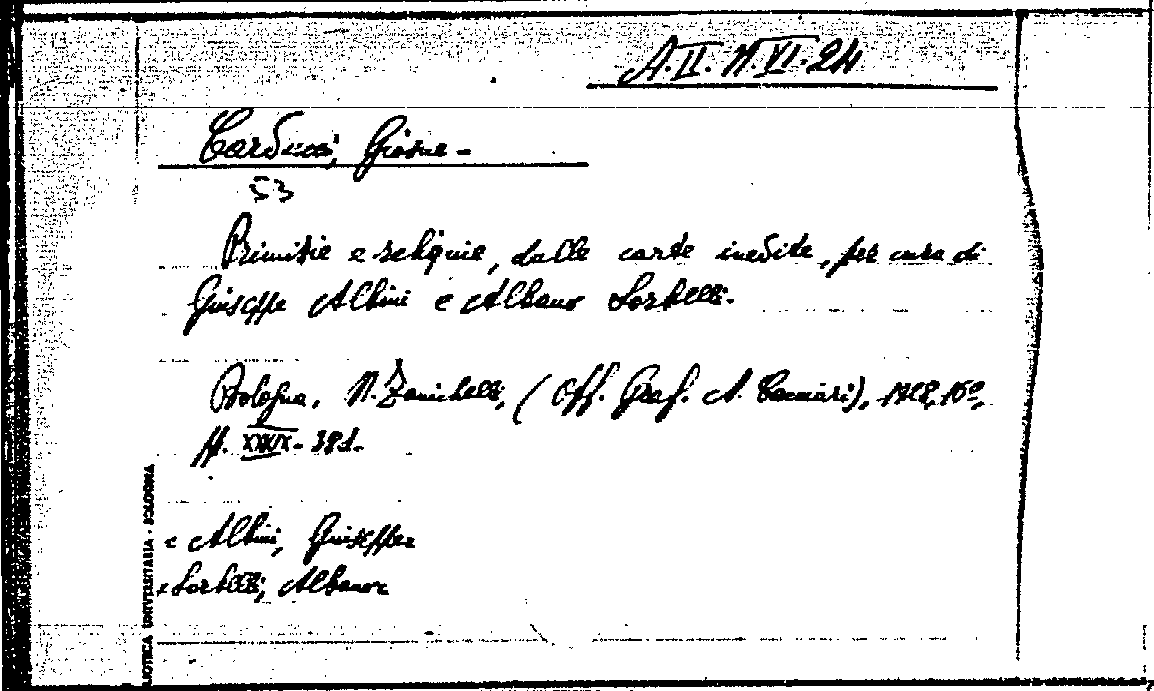 A.II.N.XI.24
Carducci, Giosue -
53
Primizie e reliquie, dalle carte inedite, per cura di
Giuseppe Albini e Albano Sorbelli.
Bologna, N. Zanichelli, (Off. Graf. A. Cacciari), 16º,
pp. XXXIX - 381.
e Albini, Giuseppe
e Sorbelli, Albano
BIBLIOTECA UNIVERSITARIA - BOLOGNA